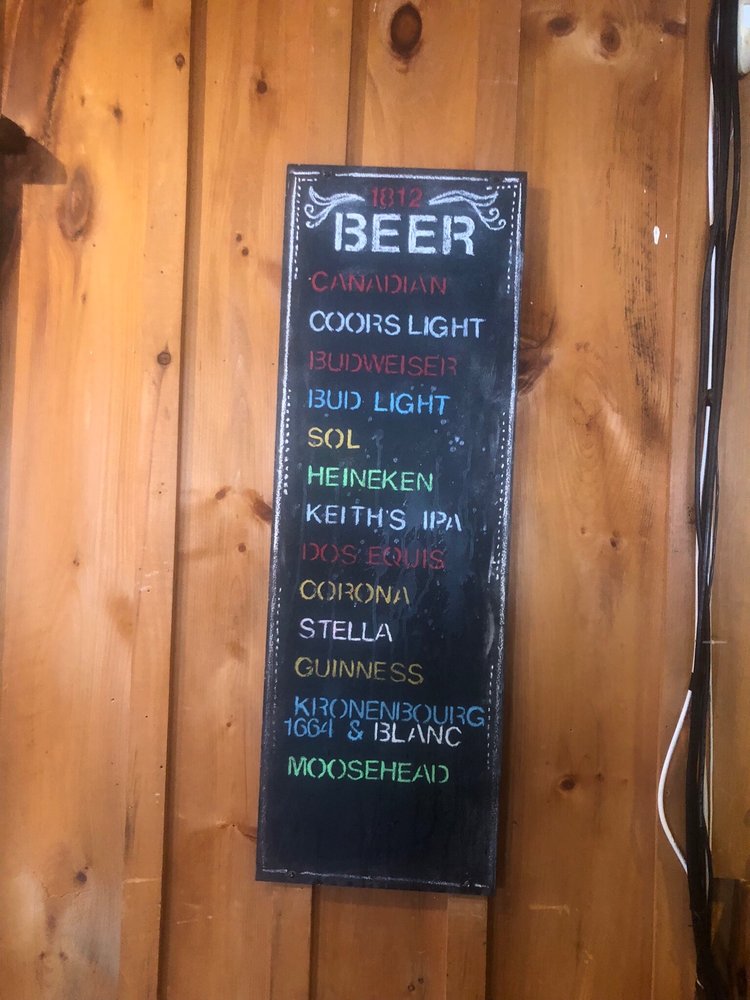 1812
BEER
CANADIAN
COORS LIGHT
BUDWEISER
BUD LIGHT
SOL
HEINEKEN
KEITH'S IPA
DOS EQUIS
CORONA
STELLA
GUINNESS
KRONENBOURG
1664 & BLANC
MOOSEHEAD